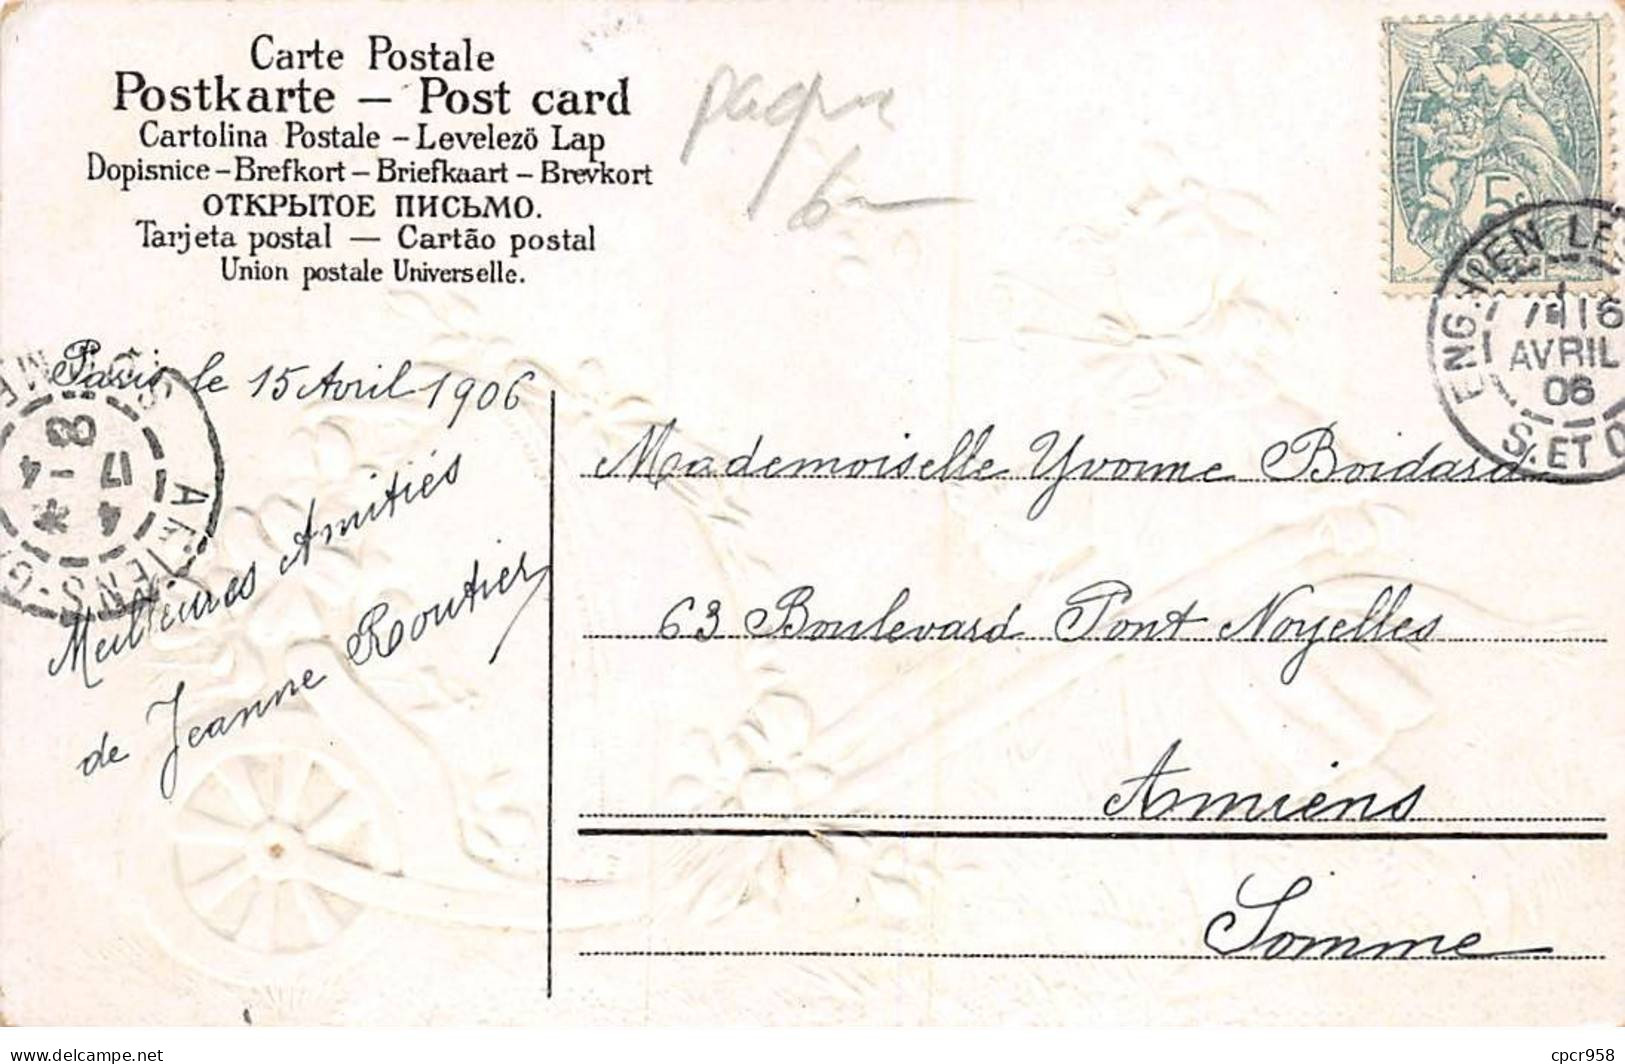 Carte Postale
Postkarte – Post card
Cartolina Postale – Levelezö Lap
Dopisnice – Brefkort – Briefkaart – Brevkort
ОТКРЫТОЕ ПИСЬМО.
Tarjeta postal — Cartão postal
Union postale Universelle.
5
ENGHIEN LE
16
AVRIL
06
S. ET O
Paris le 15 Avril 1906
AMIENS
4
17 - 4
Meilleures Amitiés
de Jeanne Routier
Mademoiselle Yvonne Boidard
63 Boulevard Pont Noyelles
Amiens
Somme
delcampe.net
cpcr958